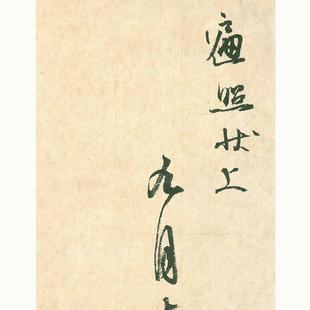 遍照状上
九月